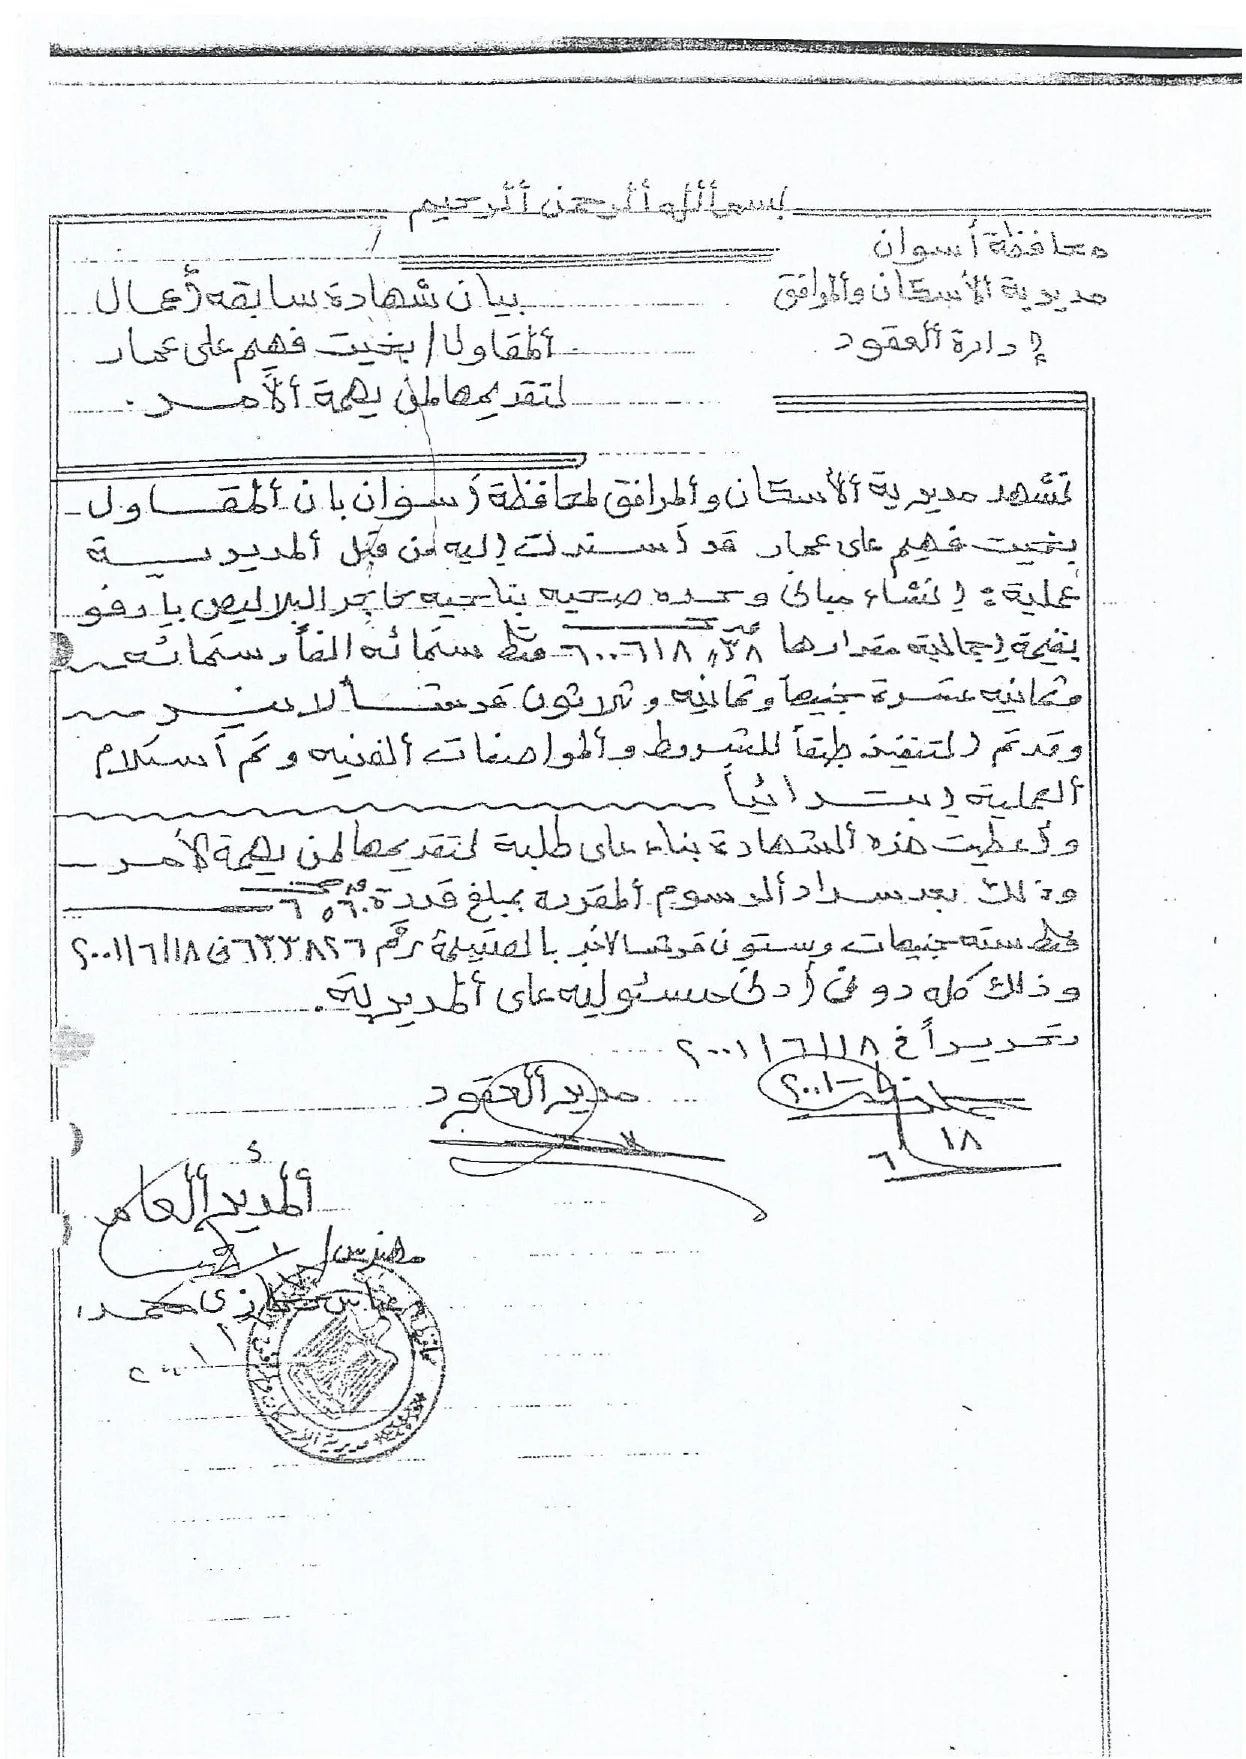 بسم الله الرحمن الرحيم
محافظة أسوان
مديرية الأسكان والمرافق
إدارة العقود
بيان شهادة سابقه أعمال
المقاول / بخيت فهيم على عمار
لتقديمها لمن يهمة الأمر .
تشهد مديرية الأسكان والمرافق لمحافظة أسوان بان المقاول
بخيت فهيم على عمار قد أسندت إليه من قبل المديرية
عملية : إنشاء مبانى وحده صحيه بناحيه حاجر البلاليص بادفو
بقيمة إجمالية مقدارها ٦٠٠٦١٨,٣٨ فقط ستمائه الفاً وستمائه
وثمانيه عشرة جنيهاً وثمانيه وثلاثون قرشاً لاغير
وقد تم التنفيذ طبقاً للشروط والمواصفات الفنيه وتم أستلام
العملية إبتدائياً
وأعطيت هذه الشهادة بناء على طلبة لتقديمها لمن يهمة الأمر
وذلك بعد سداد الرسوم المقررة بمبلغ قدرة
فقط سته جنيهات وستون قرشا لاغير بالقسيمة رقم ٦٣٣٨٢٦ فى ٢٠٠١/٦/١٨
وذلك كله دون أدنى مسئوليه على المديرية .
تحريراً فى ٢٠٠١/٦/١٨
مدير العقود
٢٠٠١
١٨
٦
المدير العام
مهندس /
عباس حجازى محمد